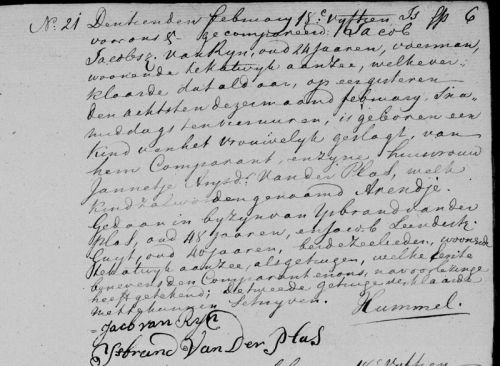 No. 21 Den tienden february 18c. Vyftien Is
voor ons gecompareerd Jacob
Jacobsz. van Ryn, oud 24 jaaren, voerman,
woonende te Katwyk aan zee, welke ver-
klaarde dat aldaar, op eergisteren
den achtsten dezer maand february, Sna
middags ten vier uuren, is geboren een
kind van het vrouwelyk geslagt, van
hem Comparant, en zyne huisvrouw
Jannetje van der Plas, welk
kind zal worden genaamd Arendje.
Gedaan in byzyn van Ysbrand van der
Plas, oud 48 jaaren, en Jacob Leendertz.
Kuyt, oud 40 jaaren, beide zeelieden, woonende
te Katwyk aan zee, als getuigen, welke eerste
benevens den Comparant en ons, na voorlezinge
heeft getekend; de tweede getuige verklaarde
niet te kunnen Schryven.
Hummel.
Jacob van Ryn
Ysbrand Van Der Plas